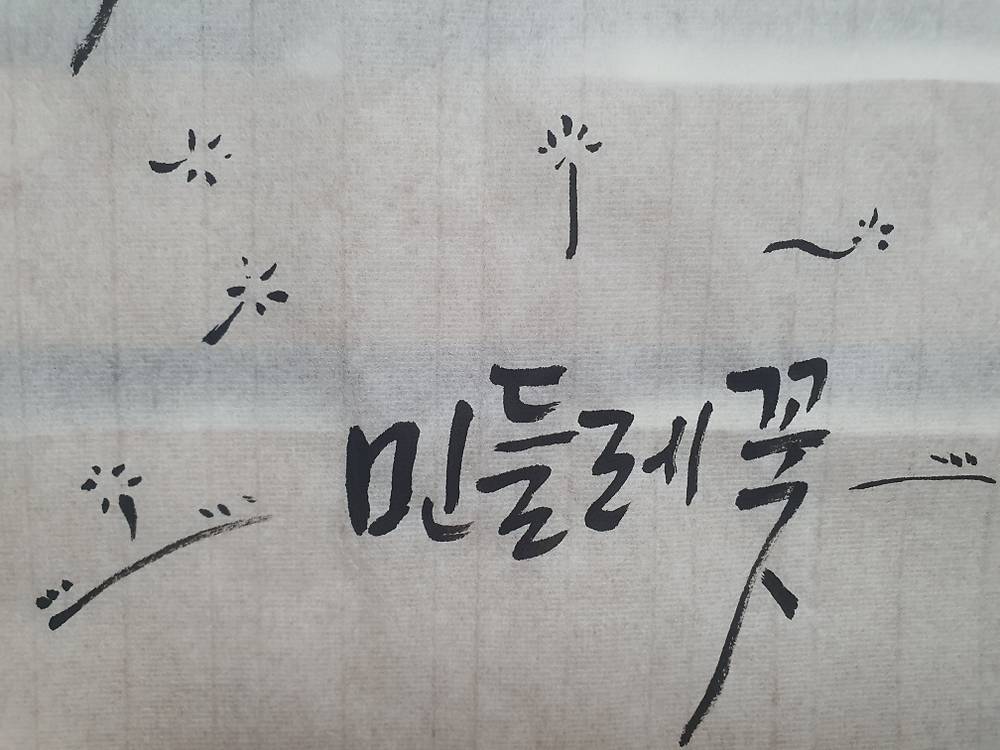 민들레꽃